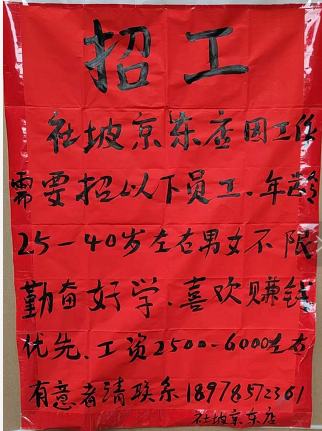 招工
社坡京东店因工作
需要招以下员工、年龄
25-40岁左右男女不限
勤奋好学、喜欢赚钱
优先、工资2500-6000左右
有意者请联系18978572361
社坡京东店